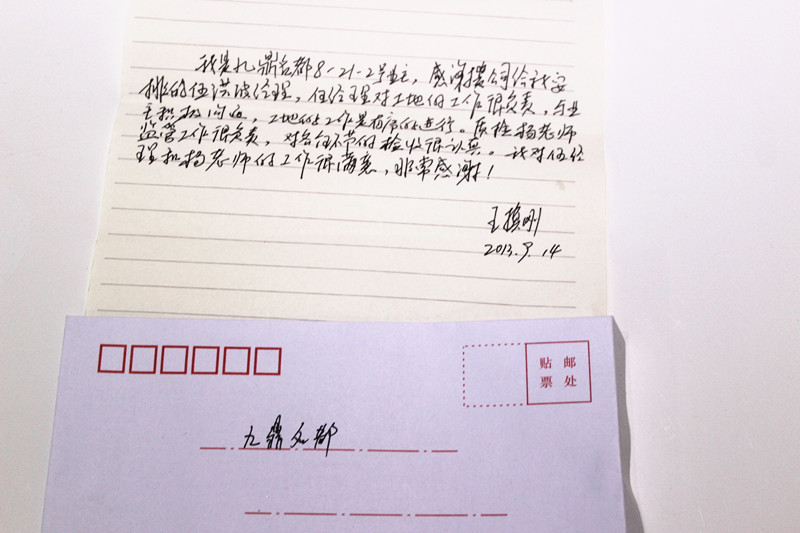 我是九鼎名都8-21-2号业主，感谢贵公司给我安
排的伍洪波经理，伍经理对工地的工作很负责，与业
主积极沟通，工地的工作是有序的进行。质检杨老师
监管工作很负责，对各个环节的检收很认真。我对伍经
理和杨老师的工作很满意，非常感谢！
王
2013.9.14
贴 邮
票 处
九鼎名都